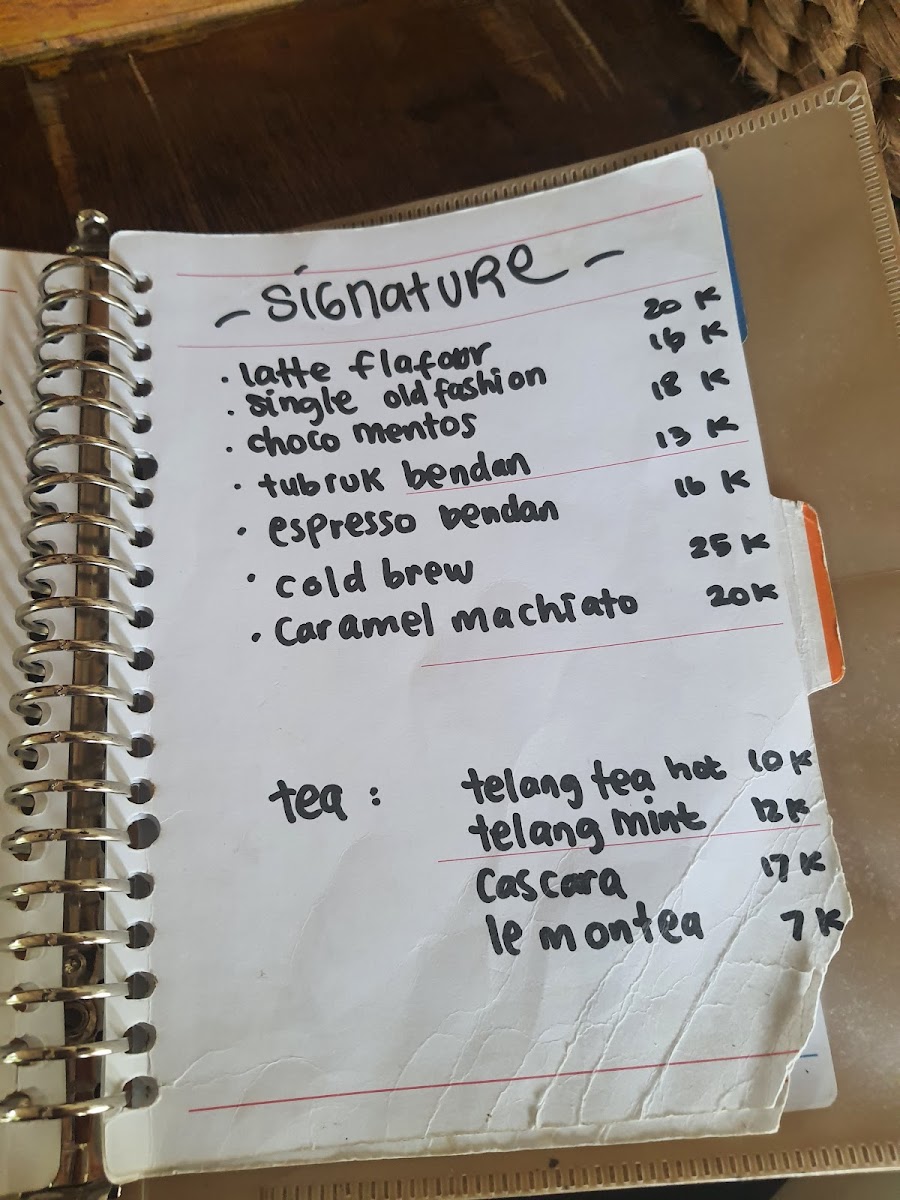 - SIGNATURE -
. latte flafour 20 K
. single old fashion 16 K
. choco mentos 18 K
. tubruk bendan 13 K
. espresso bendan 16 K
. cold brew 25 K
. Caramel machiato 20K
tea : telang tea hot 10 K
telang mint 12 K
Cascara 17 K
lemontea 7 K